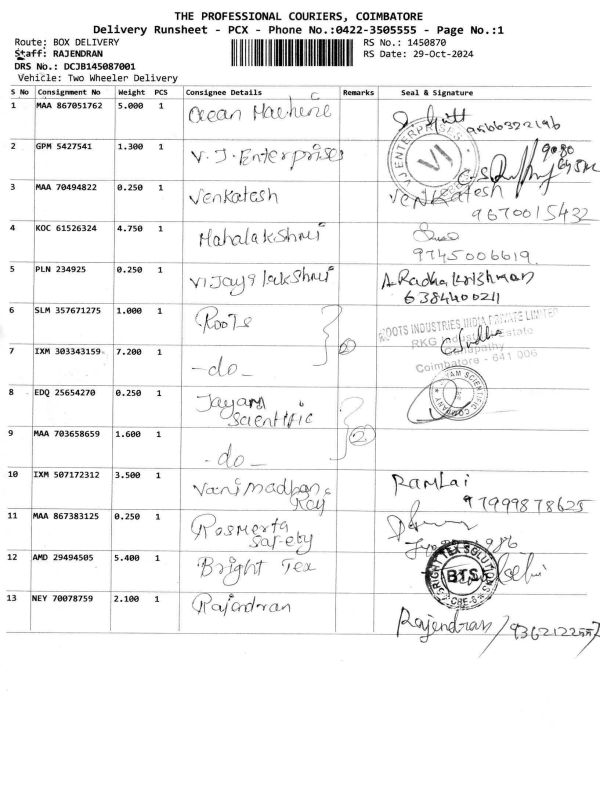 THE PROFESSIONAL COURIERS, COIMBATORE
Delivery Runsheet - PCX - Phone No.:0422-3505555 - Page No.:1
Route: BOX DELIVERY RS No.: 1450870
Staff: RAJENDRAN RS Date: 29-Oct-2024
DRS No.: DCJB145087001
Vehicle: Two Wheeler Delivery
S No Consignment No Weight PCS Consignee Details Remarks Seal & Signature
1 MAA 867051762 5.000 1 Ocean Machene
2 GPM 5427541 1.300 1 V.J.Enterprises VJ ENTERPRISES
3 MAA 70494822 0.250 1 Venkatash VENKATESH
9670015432
4 KOC 61526324 4.750 1 Mahalakshmi
9745006619
5 PLN 234925 0.250 1 Vijayalakshmi A.Radhakrishnan
6384400211
6 SLM 357671275 1.000 1 Roots 2 ROOTS INDUSTRIES INDIA PRIVATE LIMITED
RKG Industrial Estate
Ganapathy
Coimbatore - 641 006
7 IXM 303343159 7.200 1 -do-
8 EDQ 25654270 0.250 1 Jayam
Scientific 2 JAYAM SCIENTIFIC COMPANY
9 MAA 703658659 1.600 1 -do-
10 IXM 507172312 3.500 1 Vanimadhan
Ray Ramlal
97999878625
11 MAA 867383125 0.250 1 Rosmerta
Safety
12 AMD 29494505 5.400 1 Bright Tex BRIGHT TEX SOLUTIONS
BTS
CBE-6
13 NEY 70078759 2.100 1 Rajendran
Rajendran/